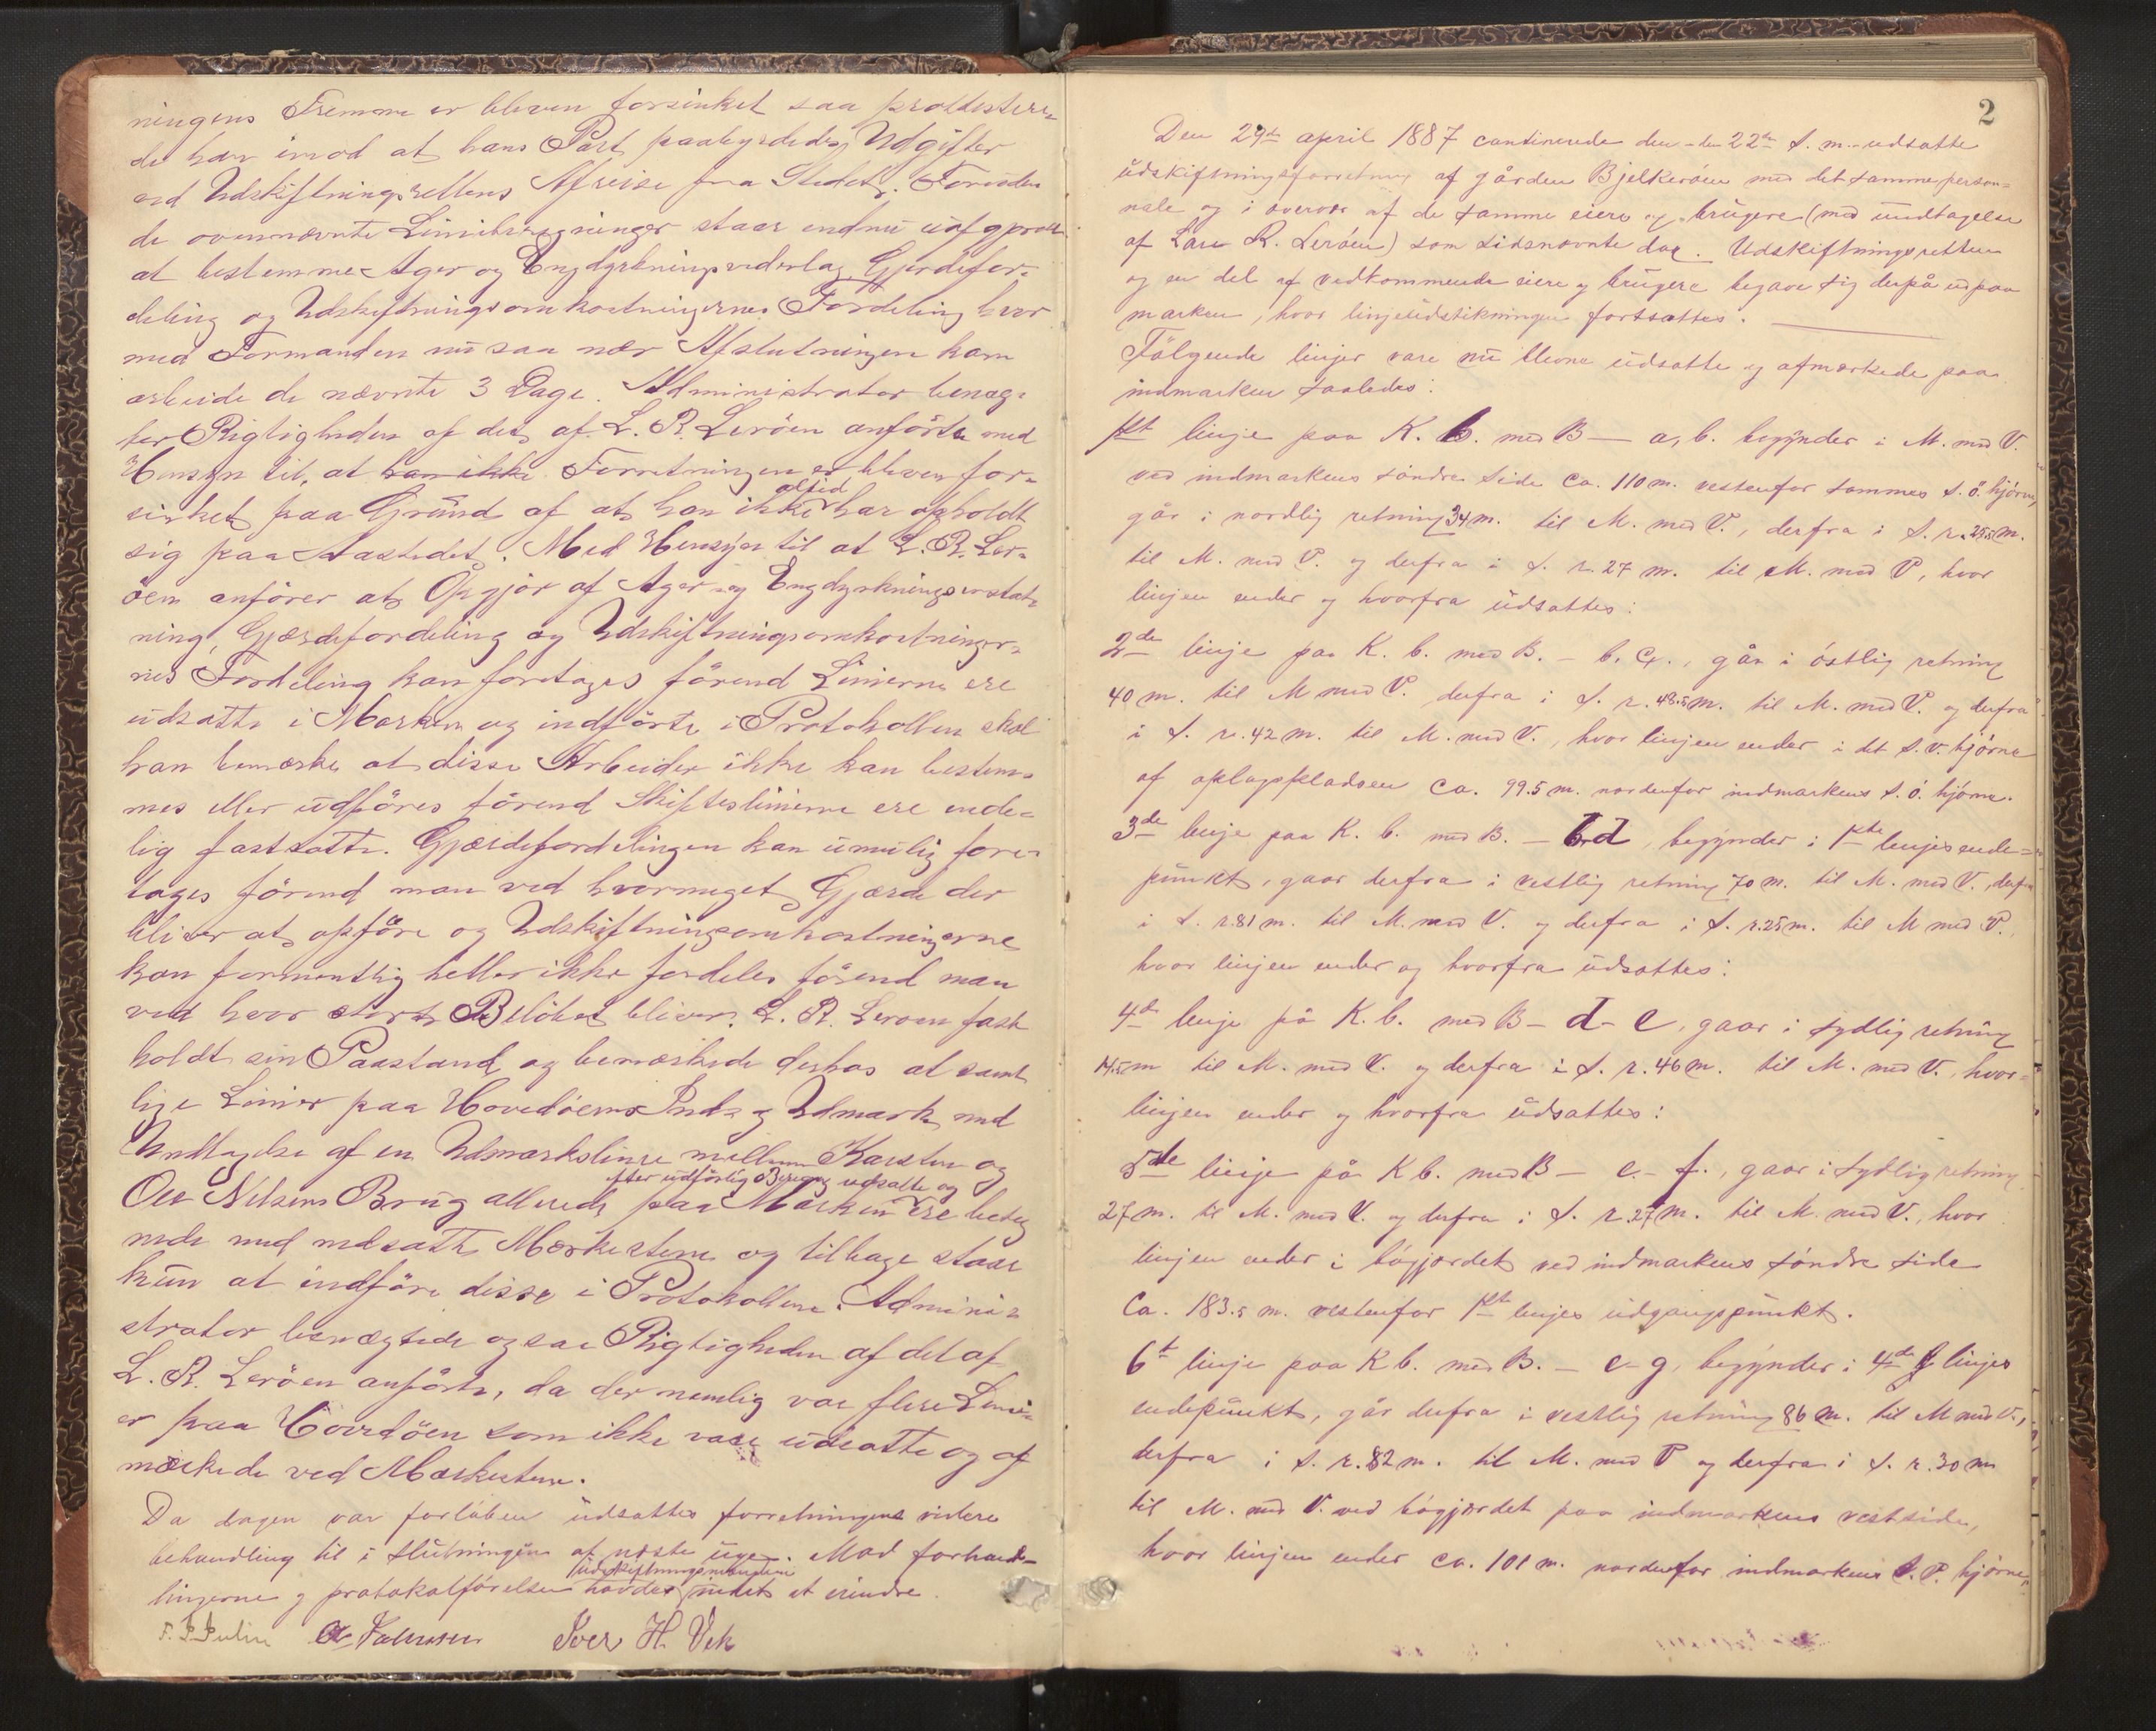 ningens Fremme er bleven forsinket saa protestere-
de han imod at hans Part paabyrdedes Udgifter
ved Udskiftningsrettens Afreise fra Stedet. Foruden
de ovennævnte Linieberegninger staar endnu uafgjort
at bestemme Ager og Engdyrkningsvederlag, Gjerdefor-
deling og Udskiftningsomkostningernes Fordeling hvor
med Formanden nu saa nær Afslutningen kom
arbeide de nævnte 3 Dage. Administrator benæg-
ter Rigtigheden af det af L. R. Leröen anförte med
Hensyn til, at han ikke Forretningen er bleven for-
sinket paa Grund af at han ikke altid har opholdt
sig paa Aastedet. Med Hensyn til at L. R. Ler-
öen anförer at Opgjör af Ager og Engdyrkningserstat-
ning, Gjærdefordeling og Udskiftningsomkostninger-
nes Fordeling kan foretages förend Linierne ere
udsatte i Marken og indförte i Protokollen skal
han bemærke at disse Arbeider ikke kan bestem-
mes eller udföres förend Skifteslinierne ere ende-
lig fastsatte. Gjærdefordelingen kan umulig fore-
tages förend man ved hvormeget Gjærde der
bliver at opföre og Udskiftningsomkostningerne
kan formentlig heller ikke fordeles förend man
ved hvor stort Belöbet bliver. L. R. Leroen fast
holdt sin Paastand og bemærkede derhos at samt
lige Linier paa Hovedöens Ind- og Udmark med
Undtagelse af en Udmarkslinie mellem Karsten og
Ole Nilsens Brug allerede paa Marken efter udförlig udsatte og ere beteg
nede med nedsatte Merkestene og tilbage staar
kun at indföre disse i Protokollen. Admini-
strator benægtede ogsaa Rigtigheden af det af
L. R. Leröen anförte, da der nemlig var flere Lini-
er paa Hovedöen som ikke vare udsatte og af
mærkede ved Mærkestene.
Da dagen var forlöben udsattes forretningens videre
behandling til i slutningen af næste uge. Mod forhand-
lingerne og protokolförelsen havdes udskiftningsmændene intet at erindre.
Iver H. Vik
2
Den 29de april 1887 continuerede den - den 22de d. m. - udsatte
udskiftningsforretning af gården Bjelkeröen med det samme person-
nale og i overvær af de samme eiere og brugere (med undtagelse
af Lars R. Leröen) som sidsnævnte dag. Udskiftningsretten
og en del af vedkommende eiere og brugere begave sig derpå ud paa
marken, hvor linjeudstikningen fortsattes.
Fölgende linjer vare nu blevne udsatte og afmærkede paa
indmarken saaledes:
1ste linje paa K. b. med B — a, b. begynder i M. med V.
ved indmarkens söndre side ca. 110 m. vestenfor sammes s. ö. hjörne,
går i nordlig retning 34 m. til M. med V., derfra i s. r. 29.5 m.
til M. med V. og derfra i s. r. 27 m. til M. med V, hvor
linjen ender og hvorfra udsattes:
2den linje paa K. b. med B. — b. c., går i östlig retning
40 m. til M med V. derfra i s. r. 48.5 m. til M. med V. og derfra
i s. r. 42 m. til M. med V., hvor linjen ender i det s. v. hjörne
af oplagspladsen ca. 99.5 m. nordenfor indmarkens s. ö. hjörne.
3de linje paa K. b. med B. — b. d, begynder i 1ste linjes ende-
punkt, gaar derfra i vestlig retning 70 m. til M. med V., derfra
i s. r. 81 m. til M. med V. og derfra i s. r. 25 m. til M med V.
hvor linjen ender og hvorfra udsattes:
4de linje på K. b. med B — d - e, gaar i sydlig retning
14.5 m til M. med V. og derfra i s. r. 46 m. til M. med V., hvor-
linjen ender og hvorfra udsattes:
5te linje på K b. med B — e - f., gaar i sydlig retning
27 m. til M. med V. og derfra i s. r. 27 m. til M. med V., hvor
linjen ender i bögjærdet ved indmarkens söndre side
ca. 183.5 m. vestenfor 1ste linjes udgangspunkt.
6te linje paa K b. med B. — e - g, begynder i 4de linjes
endepunkt, går derfra i vestlig retning 86 m. til M med V.,
derfra i s. r. 82 m. til M. med V og derfra i s. r. 30 m
til M. med V. ved bögjærdet paa indmarkens vestside,
hvor linjen ender ca. 101 m. nordenfor indmarkens S. V. hjörne,